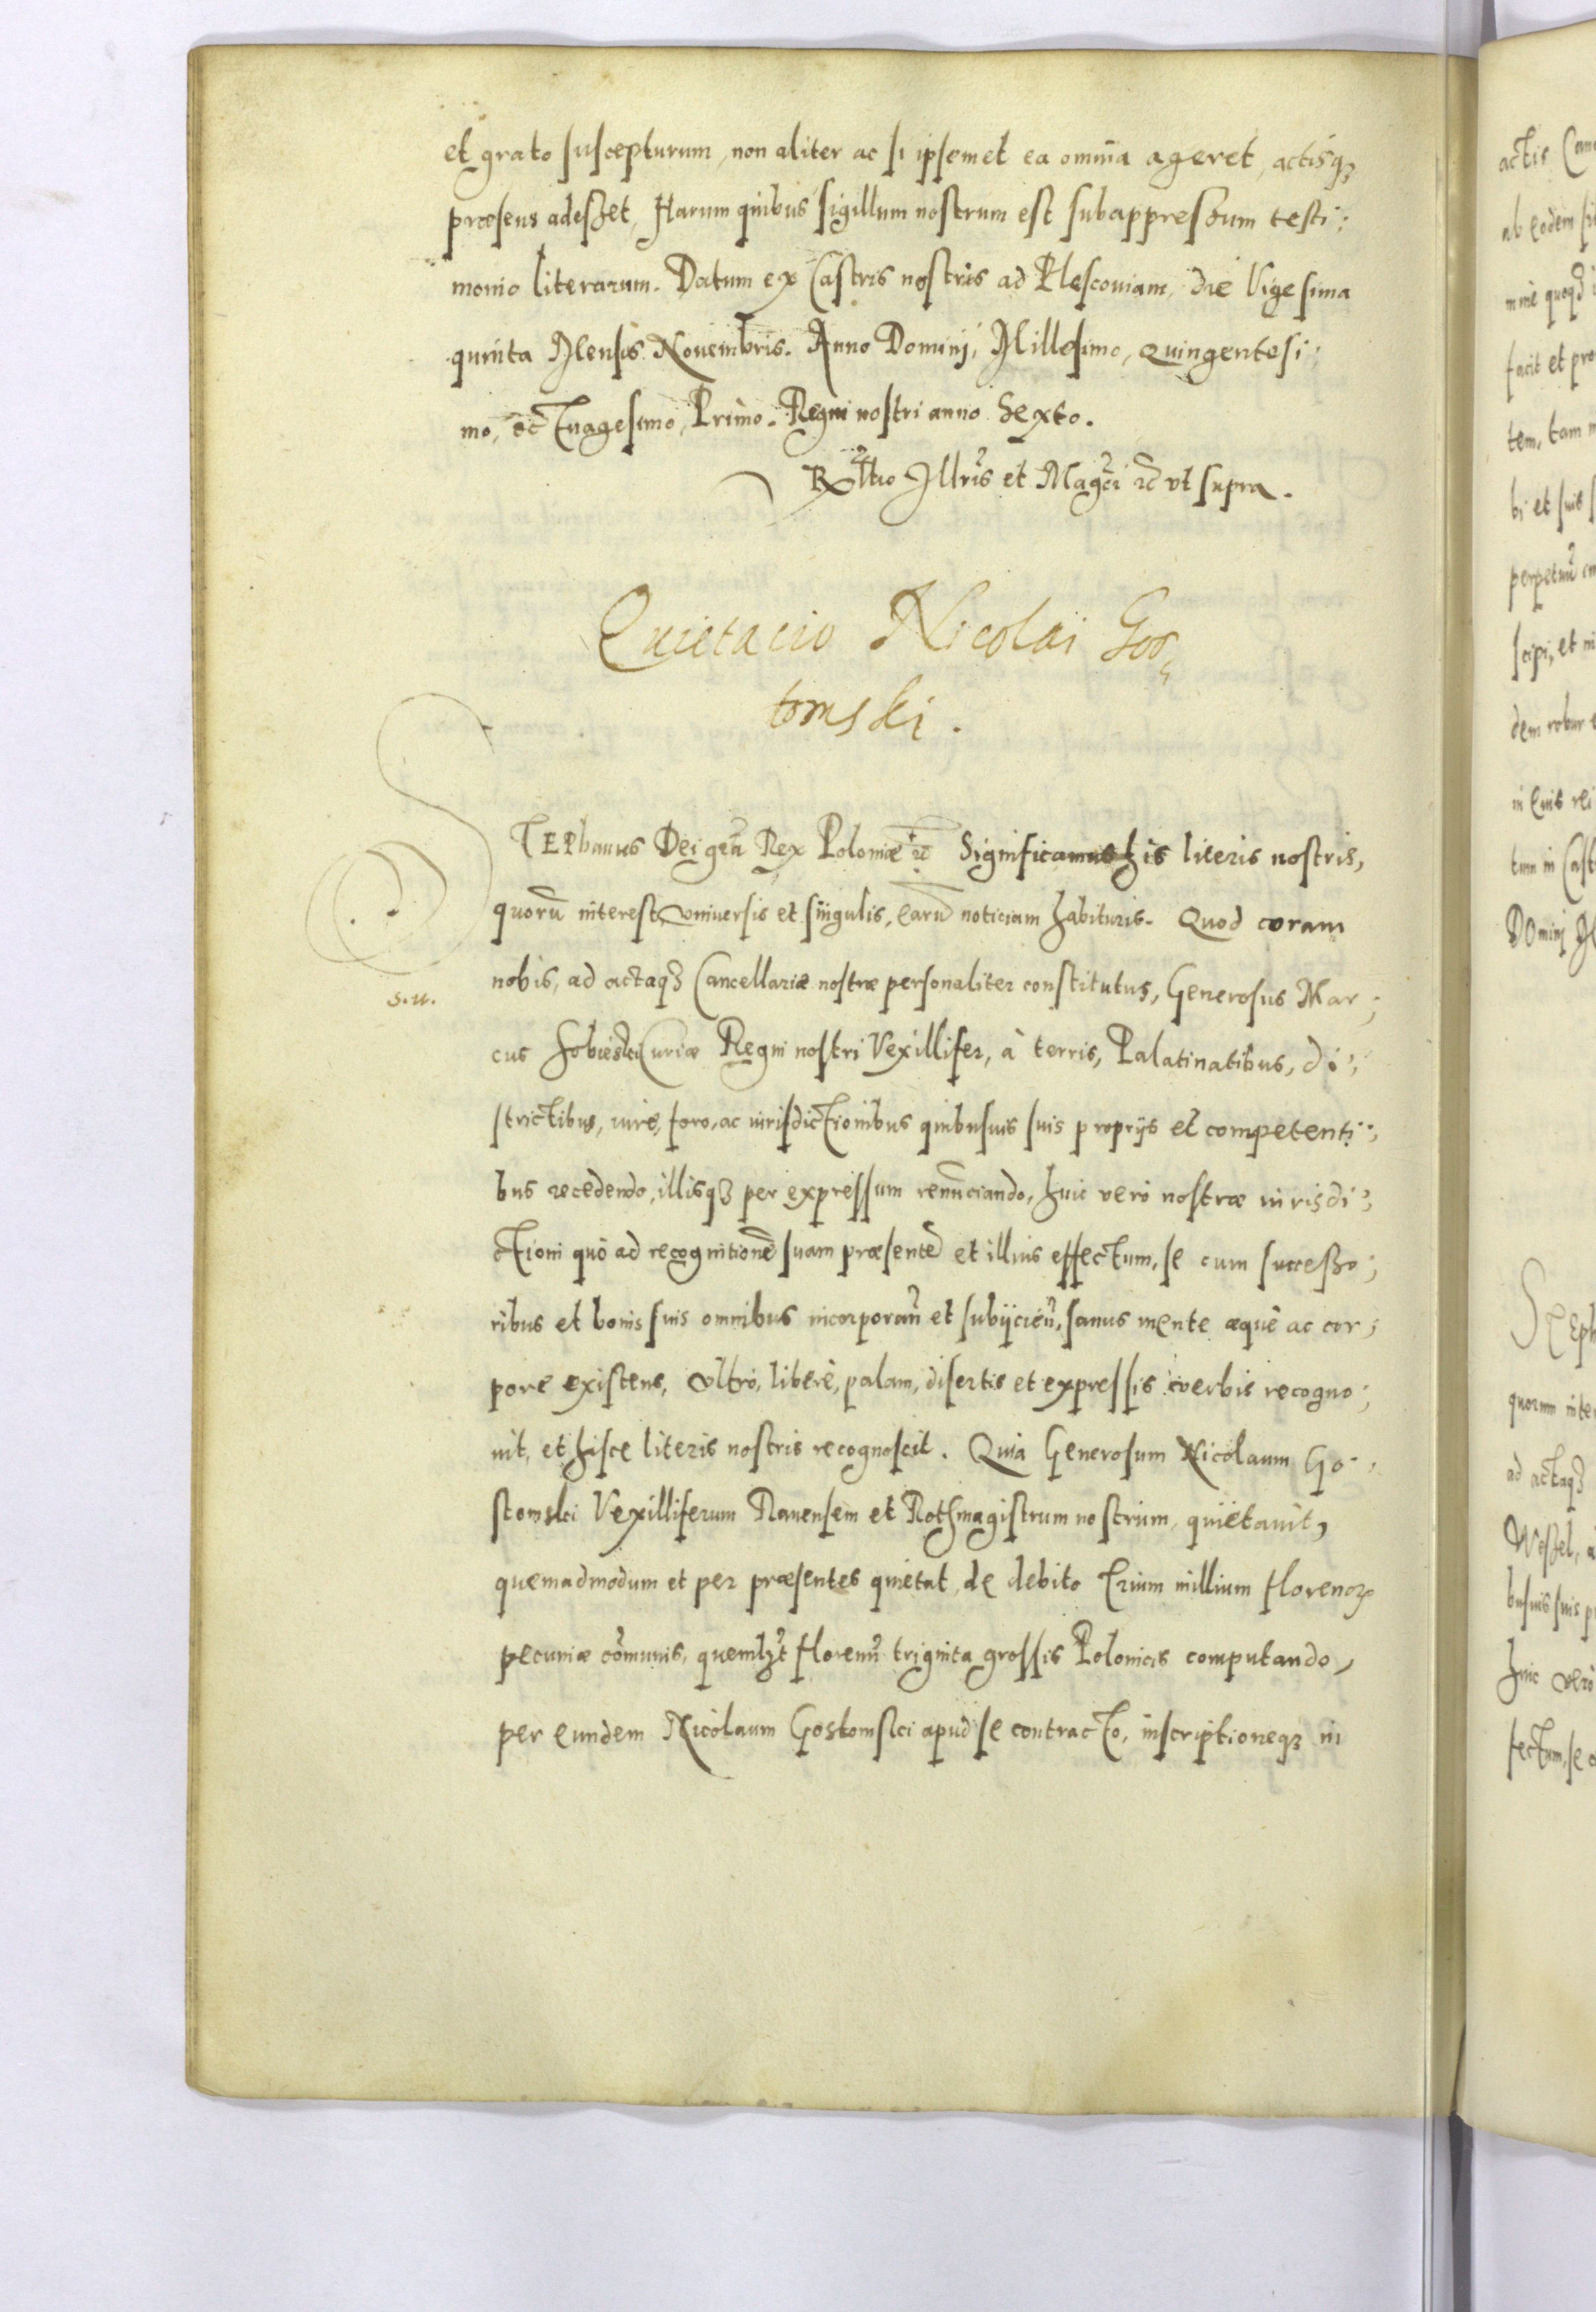 et grato suscepturum, non aliter ac si ipsemet ea omnia ageret, actisqȝ
præsens adesset, Harum quibus sigillum nostrum est subappressum testi:
monio literarum. Datum ex Castris nostris ad Plescouiam, die Vigesima
quinta Mensis Nouembris. Anno Dominj, Millesimo, quingentesi:
mo, octuagesimo, Primo. Regni nostri anno Sexto.
Rltio Illris et Magci &c vt supra.
Quietacio Nicolai Gos,
tomski.
STEPhanus Dei gra Rex Poloniæ &c Significamus his literis nostris,
quorū interest, vniuersis et singulis, earū noticiam habituris. Quod coram
nobis, ad actaqȝ Cancellariæ nostræ personaliter constitutus, Generosus Mar;
s. n.
cus Sobieski Curiæ Regni nostri Vexillifer, à terris, Palatinatibus, di;
strictibus, iure, foro, ac iurisdictionibus quibusuis suis proprijs et competenti;
bus recedendo, illisqȝ per expressum renūnciando, huic verò nostræ iurisdi;
ctioni quò ad recognitionē suam præsentē et illius effectum, se cum successo;
ribus et bonis suis omnibus incorporan̄ et subijcien̄, sanus mente æquè ac cor;
pore existens, vltrò, liberè, palam, disertis et expressis verbis recogno;
uit, et hisce literis nostris recognoscit. Quia Generosum Nicolaum Go;
stomski Vexilliferum Rauensem et Rothmagistrum nostrum, quietauit,
quemadmodum et per præsentes quietat, de debito trium millium florenoꝝ
pecuniæ cōmunis, quemlꝫt florenū triginta grossis Polonicis computando,
per eundem Nicolaum Gostomski apud se contracto, inscriptioneqȝ in